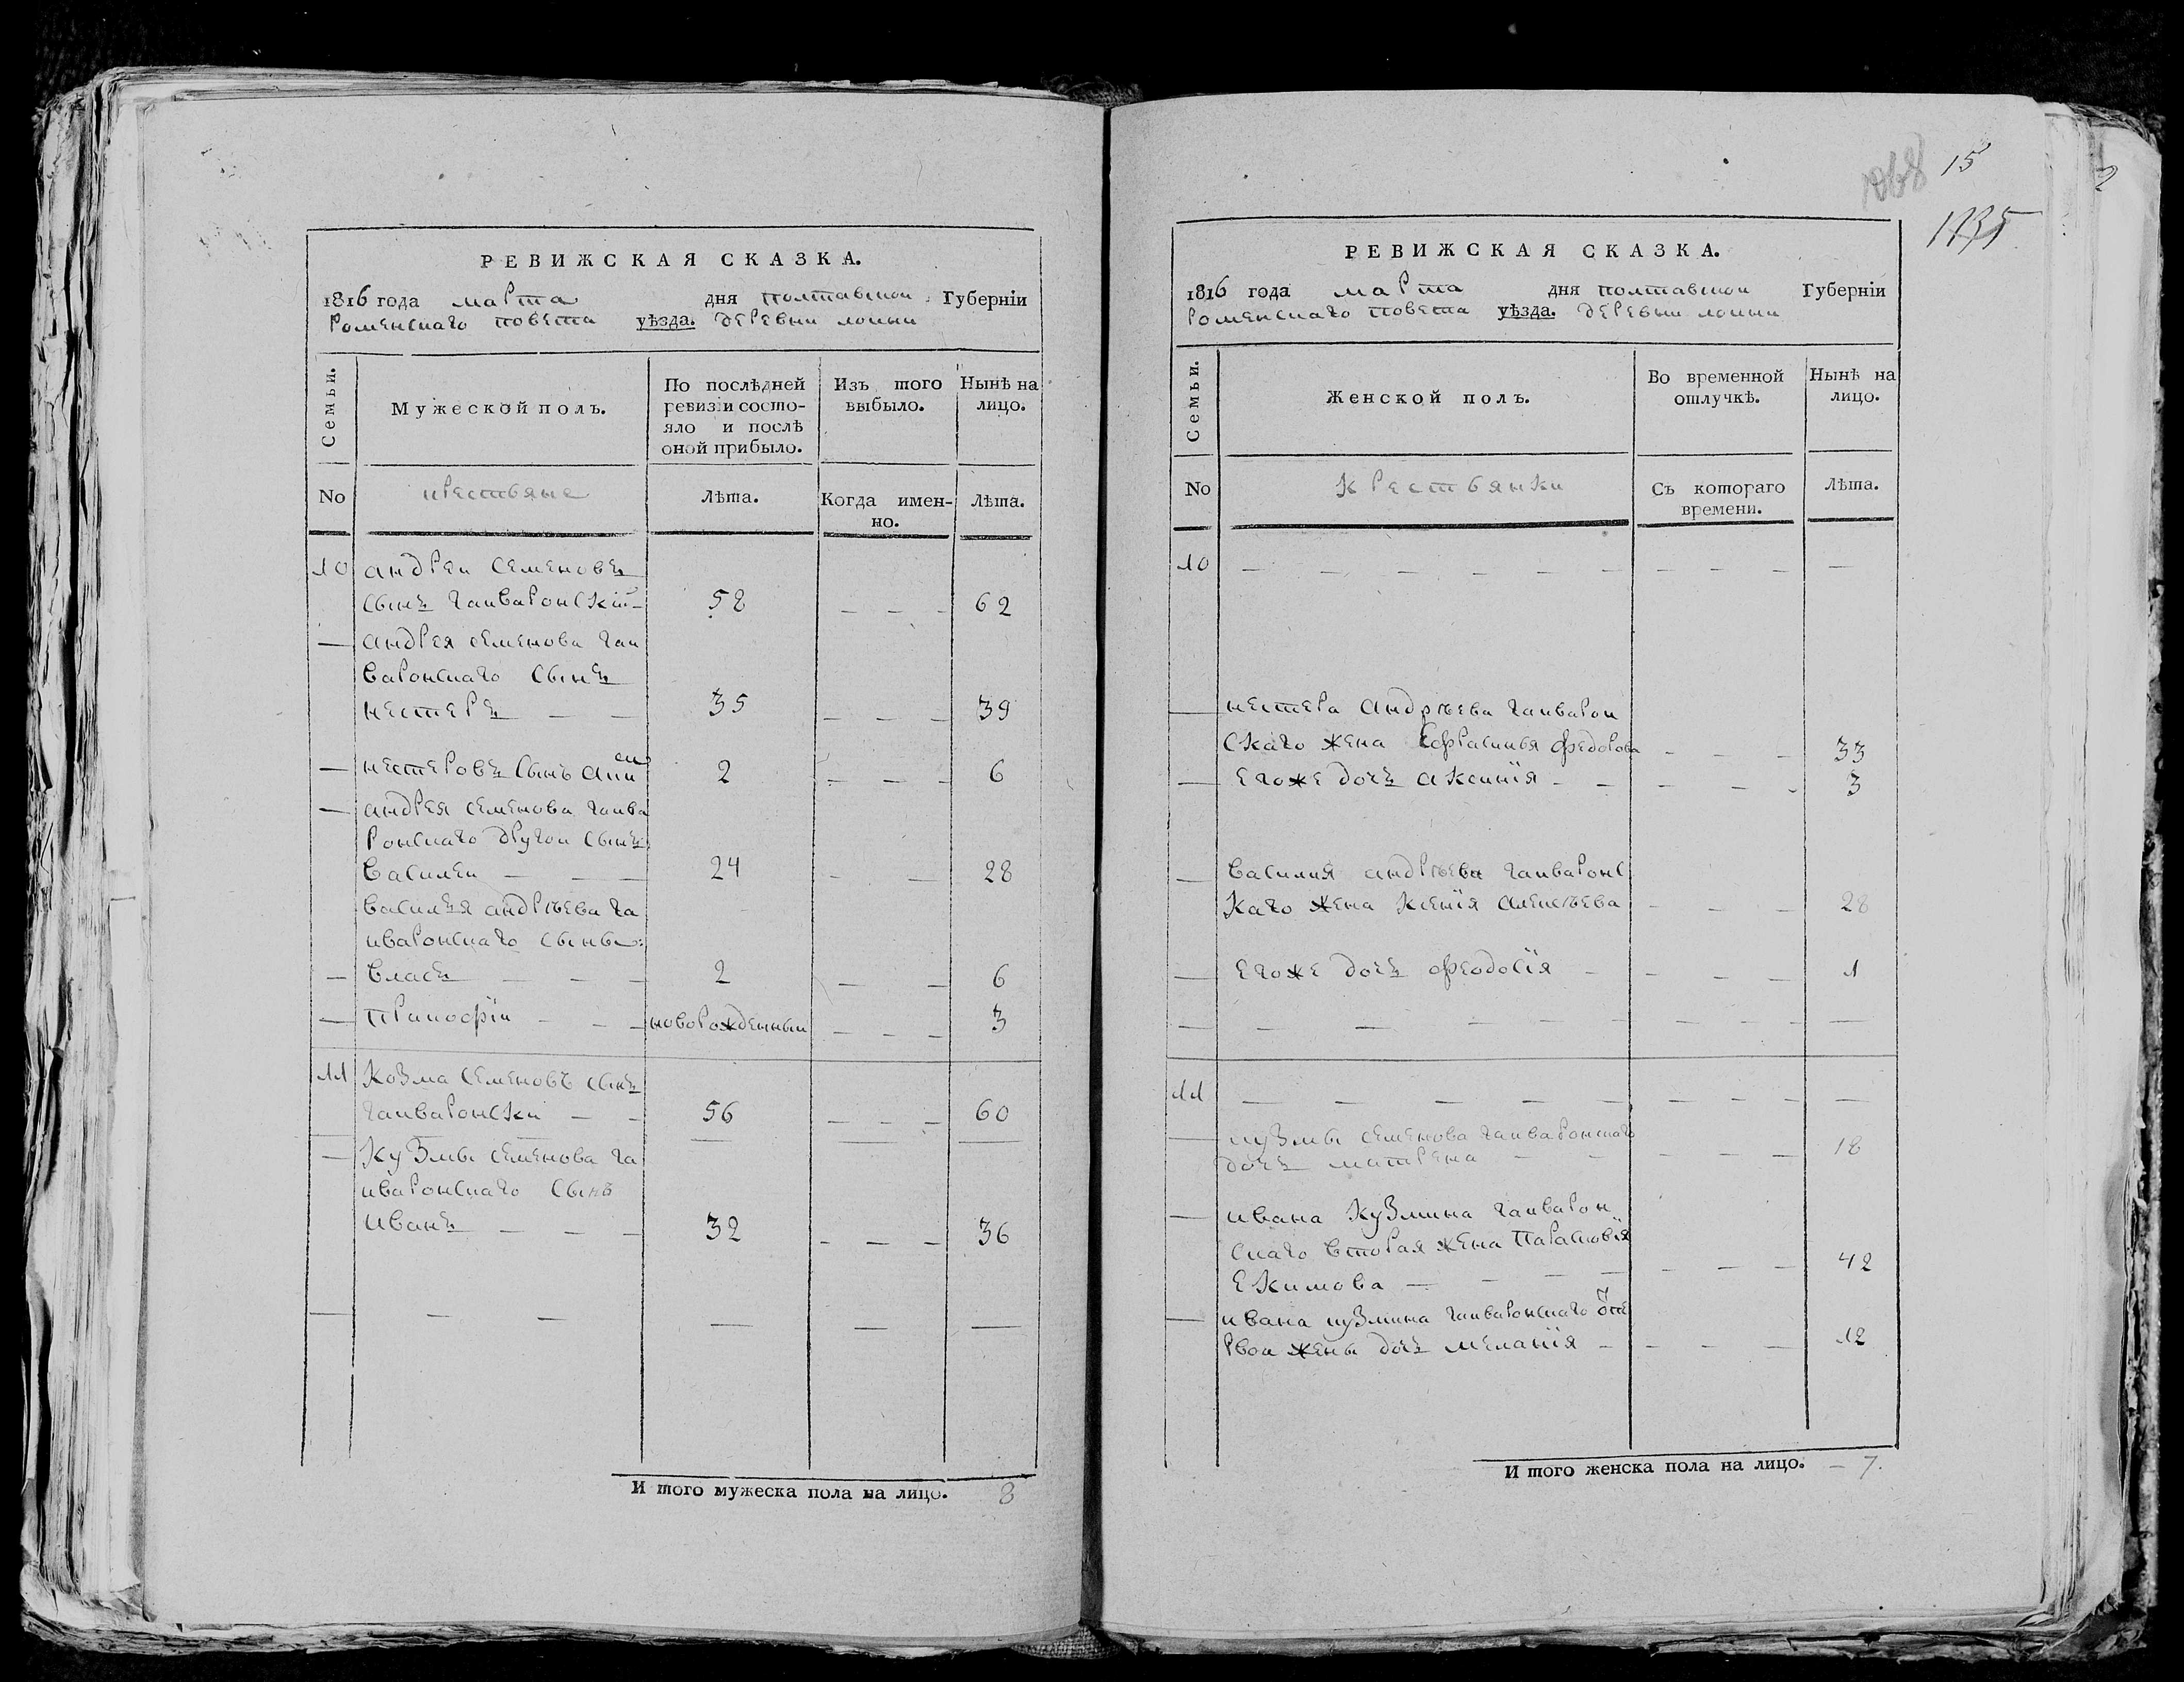 РЕВИЖСКАЯ СКАЗКА.
1816 года марта дня полтавской Губерніи
роменскаго повета уѣзда. деревни лопни
Семьи.
Мужеской полъ.
По послѣдней ревизіи состояло и послѣ оной прибыло.
Изъ того выбыло.
Нынѣ на лицо.
No
крестьяне
Лѣта.
Когда именно.
Лѣта.
10 андреи Семеновъ
сынъ гаиваронскій 58 — — — 62
— андрея семенова гаи
варонскаго сынъ
нестеръ — — 35 — — — 39
— нестеровъ сынъ 2 — — — 6
— андрея семенова гаива
ронскаго другои сынъ
василеи — — — 24 — — 28
василья андрѣева га
иваронскаго сыны:
— власъ — — — 2 — — 6
— Пракофіи — — — новорожденныи — — — 3
11 Козма Семеновъ сынъ
гаиваронски — — 56 — — — 60
— Кузмы семенова га
иваронскаго сынъ
иванъ — — — 32 — — — 36
— — — — — —
И того мужеска пола на лицо. 8
1068 15
1735
2
РЕВИЖСКАЯ СКАЗКА.
1816 года марта дня полтавскои Губерніи
роменскаго повета уѣзда. деревни лопни
Семьи.
Женской полъ.
Во временной отлучкѣ.
Нынѣ на лицо.
No
Крестьянки
Съ котораго времени.
Лѣта.
10 — — — — — — — — — —
— нестера андрѣева гаиварон
скаго жена Ефрасинья федорова — — — 33
— егоже дочъ аксинія — — — — — 3
— василия андрѣева гаиваронс
каго жена ксенія алексѣева — — — 28
— егоже дочъ феодосія — — — — 1
— — — — — — — — — —
11 — — — — — — — — — —
— кузмы семенова гаиваронскаго
дочъ матрена — — — — — 18
— ивана Кузмина гаиварон
скаго вторая жена Парасковія
Екимова — — — — — — — 42
— ивана кузмина гаиваронскаго ѿпе
рвои жены дочъ меланія — — — — 12
И того женска пола на лицо. — 7.